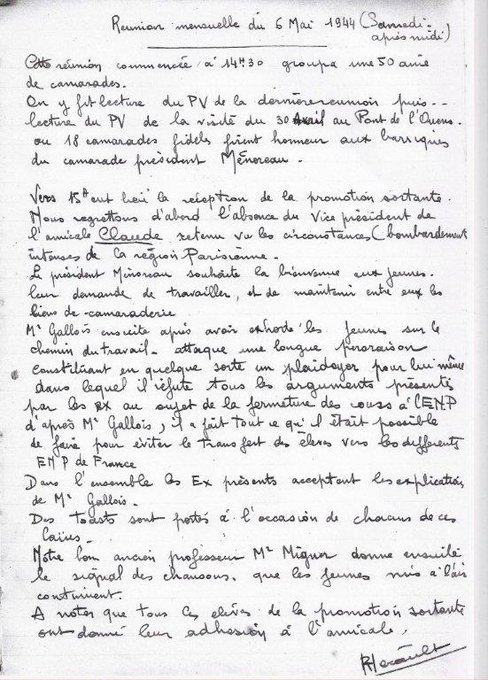 Reunion mensuelle du 6 Mai 1944 (Samedi-
après midi)
Cette réunion commencée à 14H30 groupa une 50 aine
de camarades.
On y fit lecture du PV de la dernière reunion puis --
lecture du PV de la visite du 30 Avril au Pont de l'Ouen
ou 18 camarades fidèles firent honneur aux barriques
du camarade président Ménoreau.
Vers 15H eut lieu la réception de la promotion sortante.
Nous regrettons d'abord l'absence du Vice président de
l'amicale Claude retenu vu les circonstances (bombardement
intenses de la région Parisienne.
Le président Ménoreau souhaite la bienvenue aux jeunes.
leur demande de travailler, et de maintenir entre eux les
liens de camaraderie
Mr Gallois ensuite après avoir exhorté les jeunes sur le
chemin du travail - attaque une longue peroraison
constituant en quelque sorte un plaidoyer pour lui même
dans lequel il réfute tous les arguments présentés
par les ex au sujet de la fermeture des cours à l'E.N.P
d'après Mr Gallois, il a fait tout ce qu'il était possible
de faire pour éviter le transfert des élèves vers les differents
ENP de France
Dans l'ensemble les Ex présents acceptent les explication
de Mr Gallois.
Des toasts sont portés à l'occasion de chacun de ces
laïus.
Notre bon ancien professeur Mr Migner donne ensuite
le signal des chansons, que les jeunes mis à l'air
continuent.
A noter que tous les elèves de la promotion sortante
ont donné leur adhesion à l'amicale.
RHerault